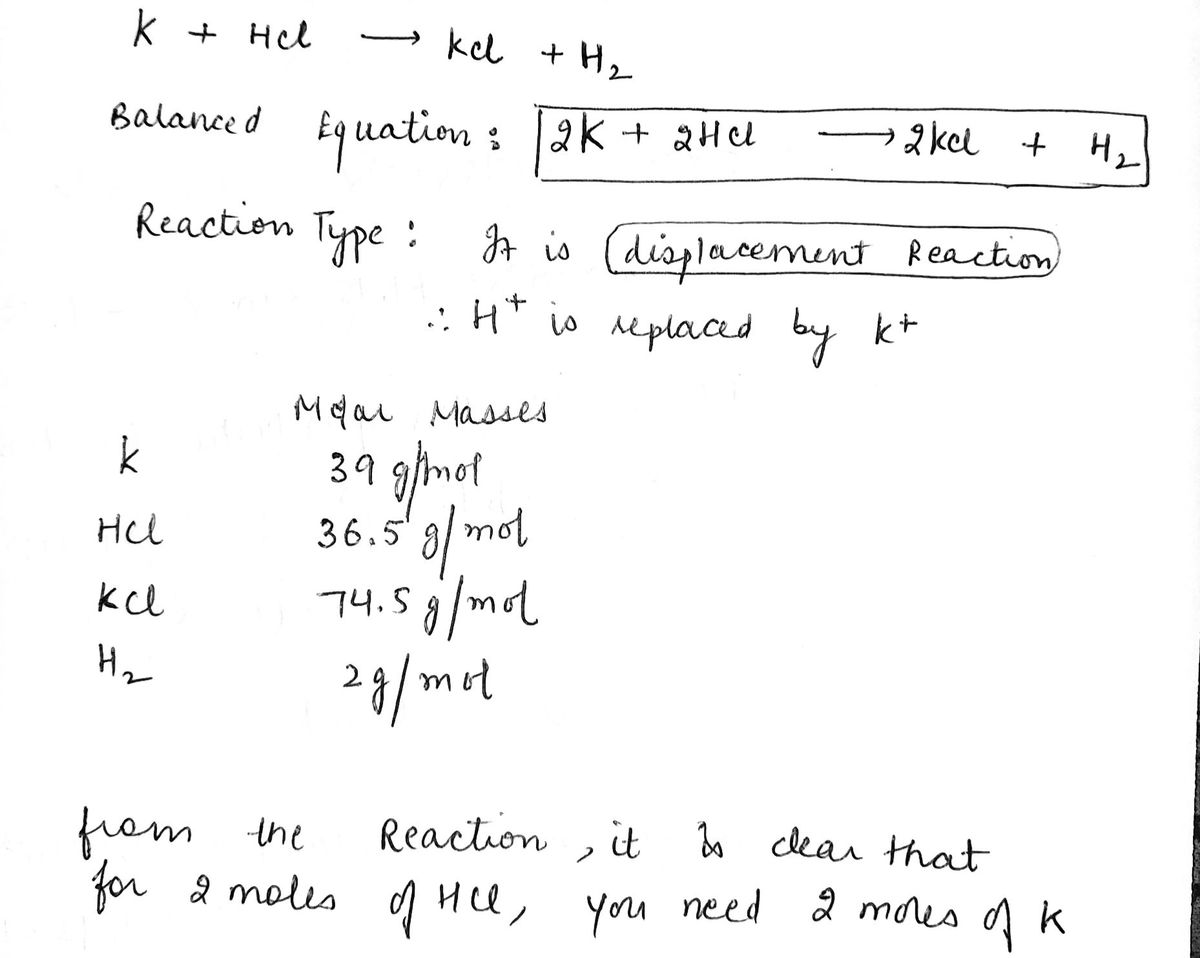 K + HCl → KCl + H₂
Balanced Equation : 2K + 2HCl → 2KCl + H₂
Reaction Type : It is displacement Reaction
∴ H⁺ is replaced by K⁺
Molar Masses
K 39 g/mol
HCl 36.5 g/mol
KCl 74.5 g/mol
H₂ 2g/mol
from the Reaction, it is clear that
for 2 moles of HCl, you need 2 moles of K